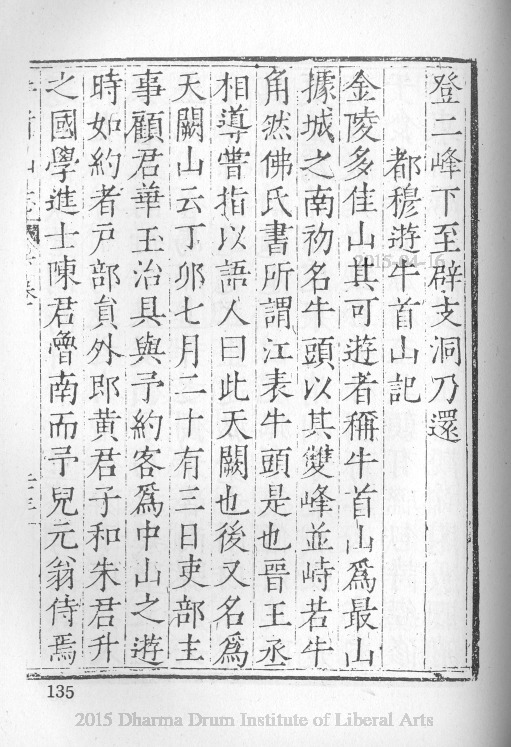 登二峰下至辟支洞乃還
都穆遊牛首山記
金陵多佳山其可遊者稱牛首山爲最山
據城之南初名牛頭以其雙峰並峙若牛
角然佛氏書所謂江表牛頭是也晉王丞
相導嘗指以語人曰此天闕也後又名爲
天闕山云丁卯七月二十有三日吏部主
事顧君華玉治具與予約客爲中山之遊
時如約者戸部貟外郎黄君子和朱君升
之國學進士陳君魯南而予兒元翁侍焉
135
2015-04-16
2015 Dharma Drum Institute of Liberal Arts